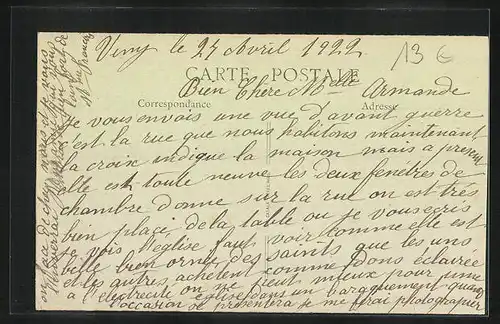 Vimy le 27 Avril 1922
13 €
CARTE POSTALE
Bien Chère Mdlle Armande
Correspondance
Adresse
Je vous envais une vue d'avant guerre
c'est la rue que nous habitons maintenant
la croix indique la maison mais a present
elle est toute neuve les deux fenetres de
chambre donne sur la rue on est très
bien placé, de la table ou je vous ecris
je vois l'eglise faut voir comme elle est
belle bien ornée des saints que les uns
et les autres, achetent comme dons éclairée
a l'electrecité on ne peut mieux pour une
église dans un baraquement quand
l'occasion se presentera je me ferai photographier
en face de chez nous et je vous